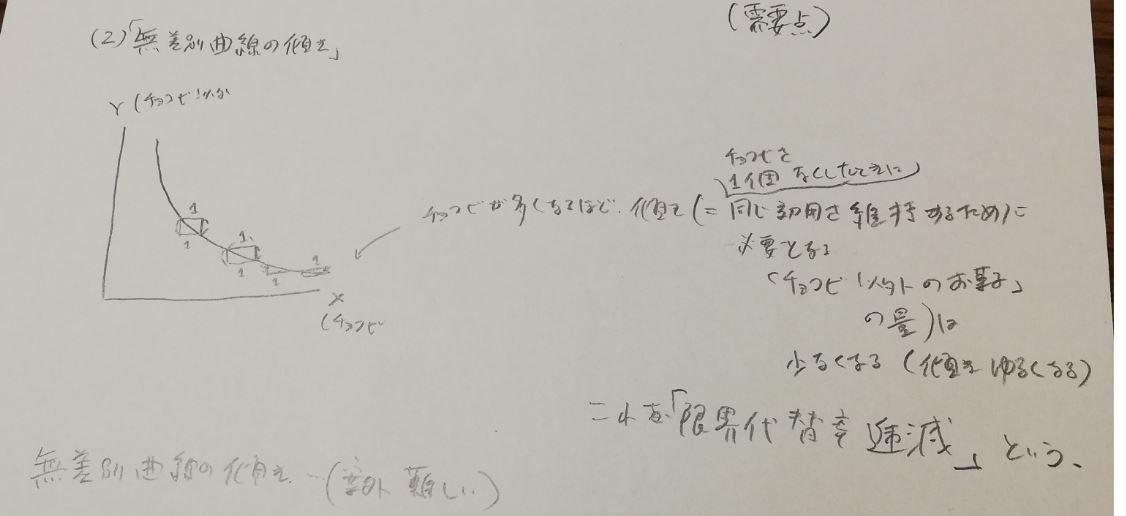 (需要点)
(2)「無差別曲線の傾き」
Y(チョコビ以外
1
1
1
1
1
1
X
(チョコビ
チョコビを
1個なくしたときに
チョコビが多くなるほど、傾き(=同じ効用を維持するために
必要となる
「チョコビ以外のお菓子」
の量)は
少なくなる(傾きゆるくなる)
これを「限界代替率逓減」という、
無差別曲線の傾き…(案外難しい)